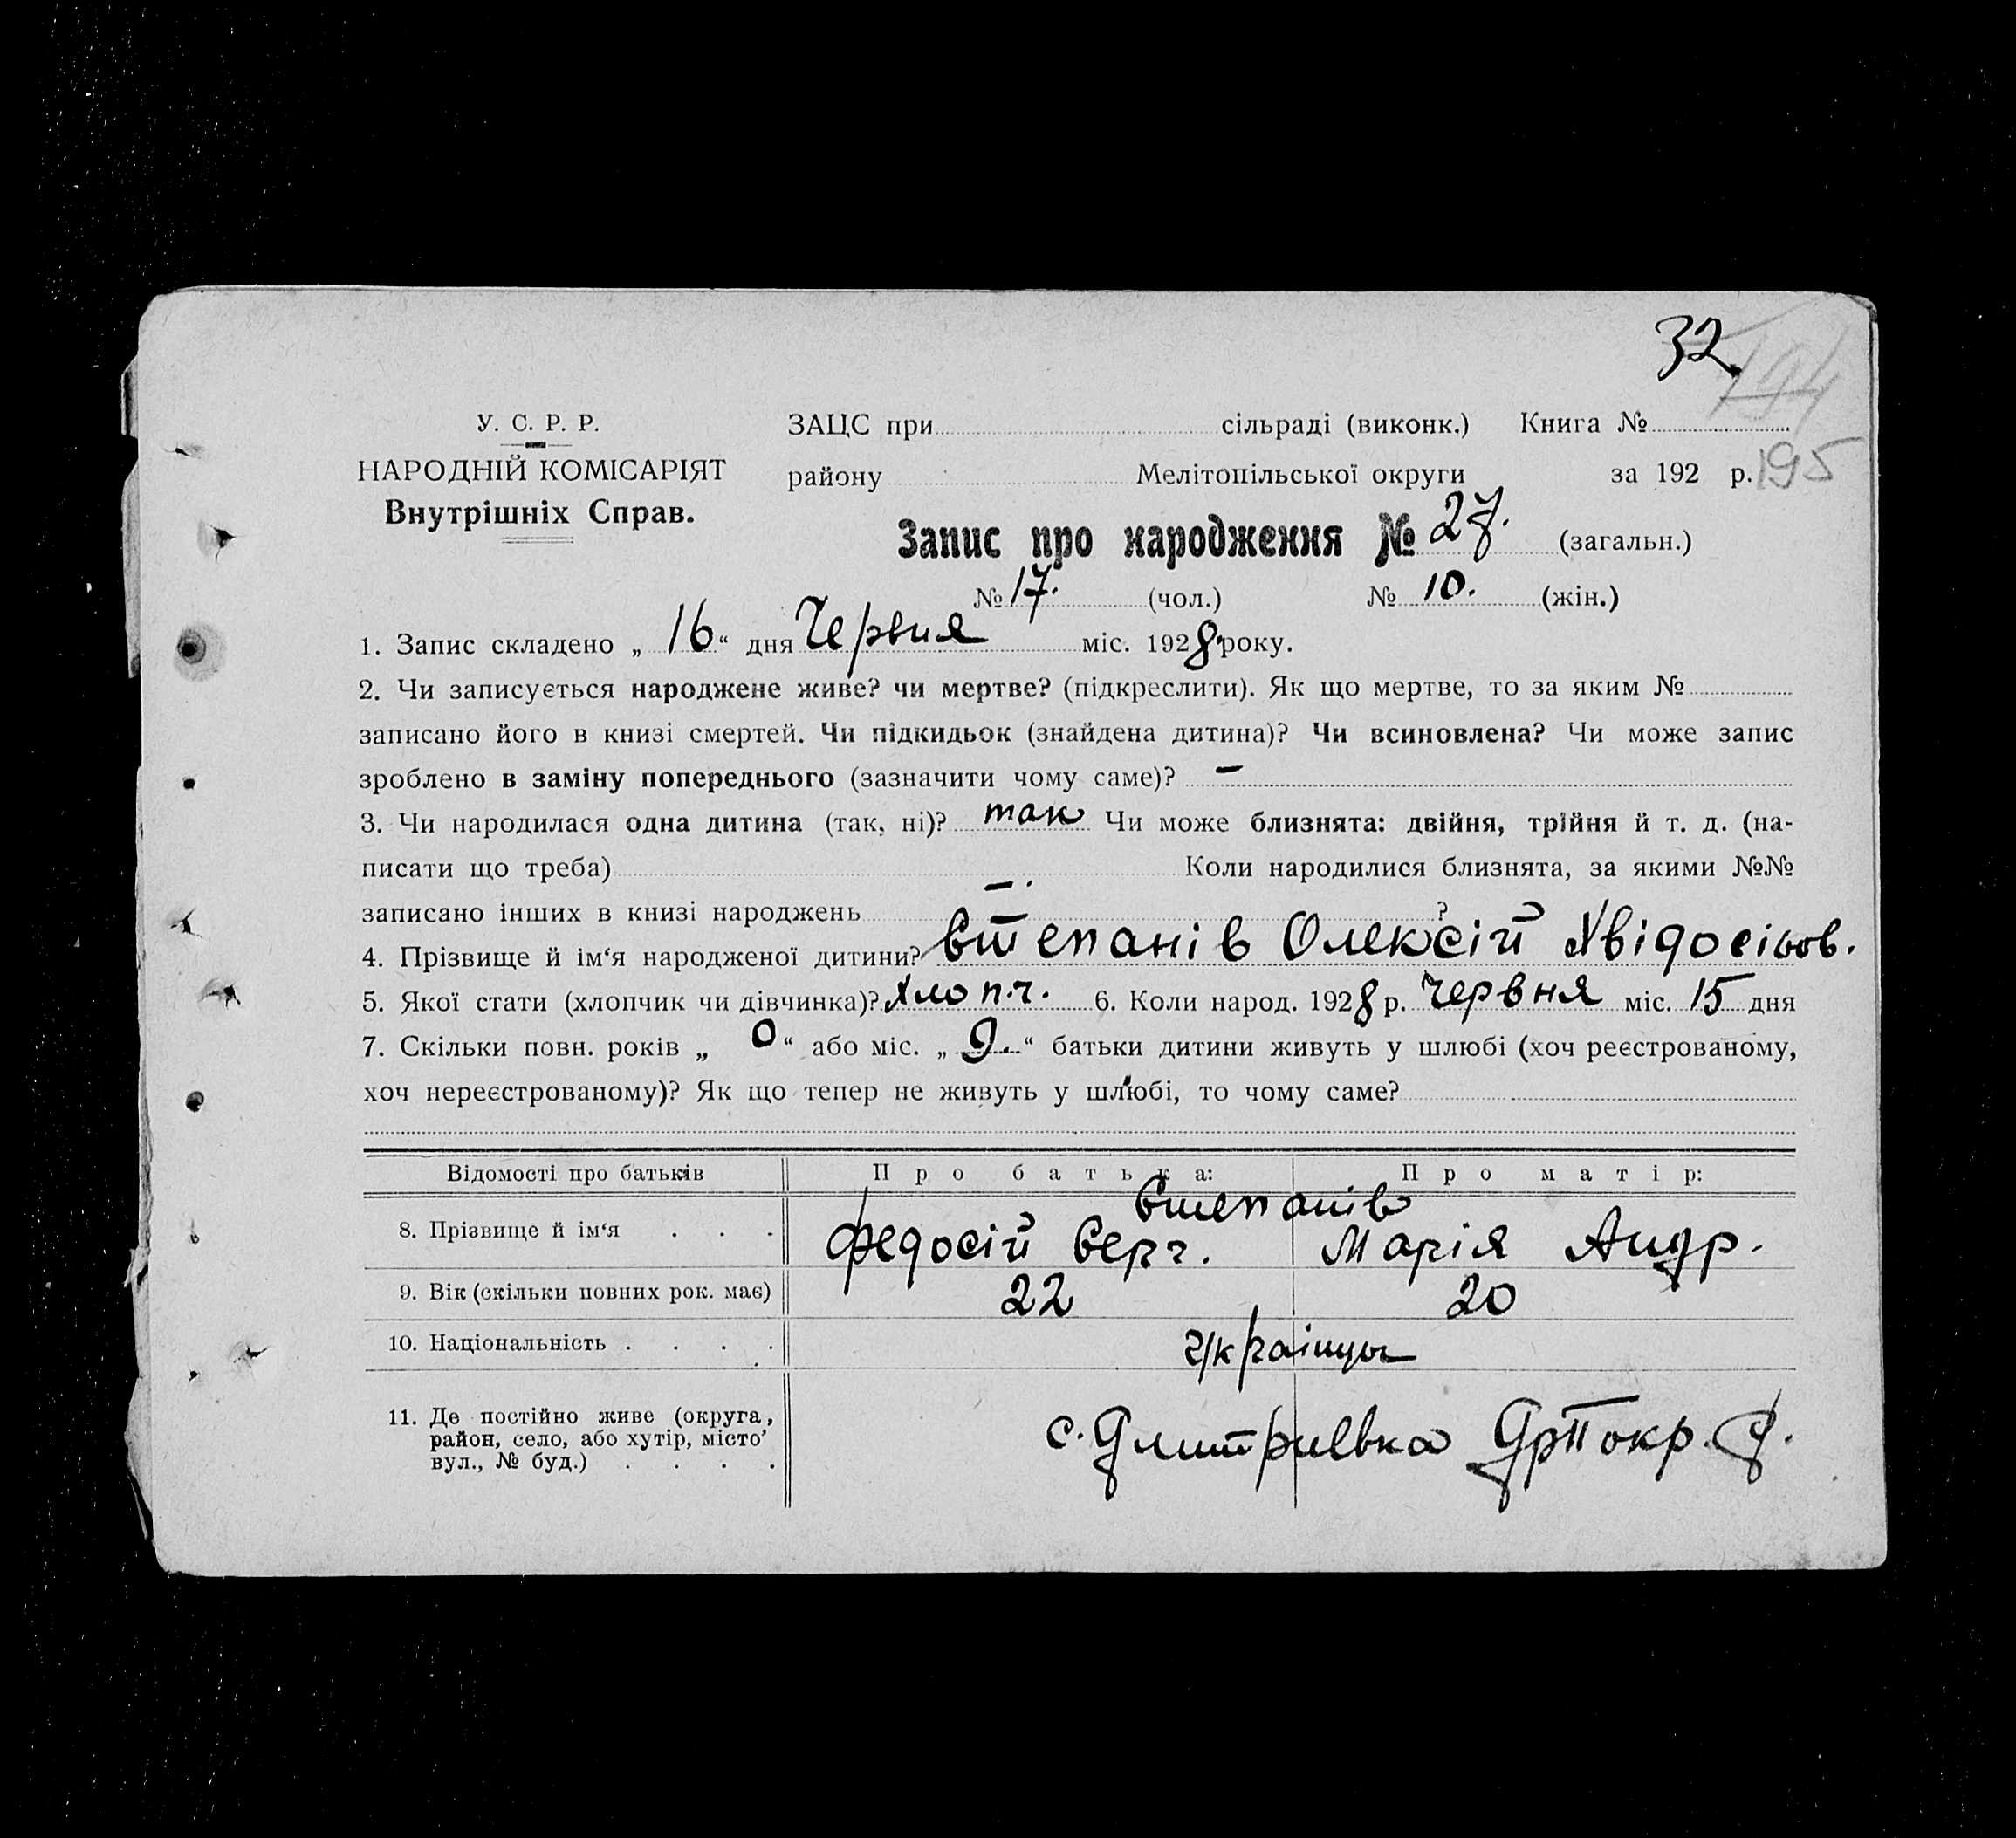 32.
194
У. С. Р. Р.
НАРОДНІЙ КОМІСАРІЯТ
Внутрішніх Справ.
ЗАЦС при сільраді (виконк.) Книга №
району Мелітопільської округи за 192 р. 195
Запис про народження № 27. (загальн.)
№ 17. (чол.) № 10. (жін.)
1. Запис складено „ 16 “ дня Червня міс. 1928 року.
2. Чи записується народжене живе? чи мертве? (підкреслити). Як що мертве, то за яким №
записано його в книзі смертей. Чи підкидьок (знайдена дитина)? Чи всиновлена? Чи може запис
зроблено в заміну попереднього (зазначити чому саме)? –
3. Чи народилася одна дитина (так, ні)? так Чи може близнята: двійня, трійня й т. д. (на-
писати що треба) Коли народилися близнята, за якими №№
записано інших в книзі народжень – . ?
4. Прізвище й ім‘я народженої дитини? Степанів Олексій Хвідосійов.
5. Якої стати (хлопчик чи дівчинка)? хлопч. 6. Коли народ. 1928 р. Червня міс. 15 дня
7. Скільки повн. років „ 0 “ або міс. „ 9. “ батьки дитини живуть у шлюбі (хоч реєстрованому,
хоч нереєстрованому)? Як що тепер не живуть у шлюбі, то чому саме?
Відомості про батьків Про батька: Про матір:
Степанів
8. Прізвище й ім‘я . . . Федосій Серг. Марія Андр.
9. Вік (скільки повних рок. має) 22 20
10. Національність . . . . Українцы
11. Де постійно живе (округа,
район, село, або хутір, місто’
вул., № буд.) . . . . с. Дмитриевка